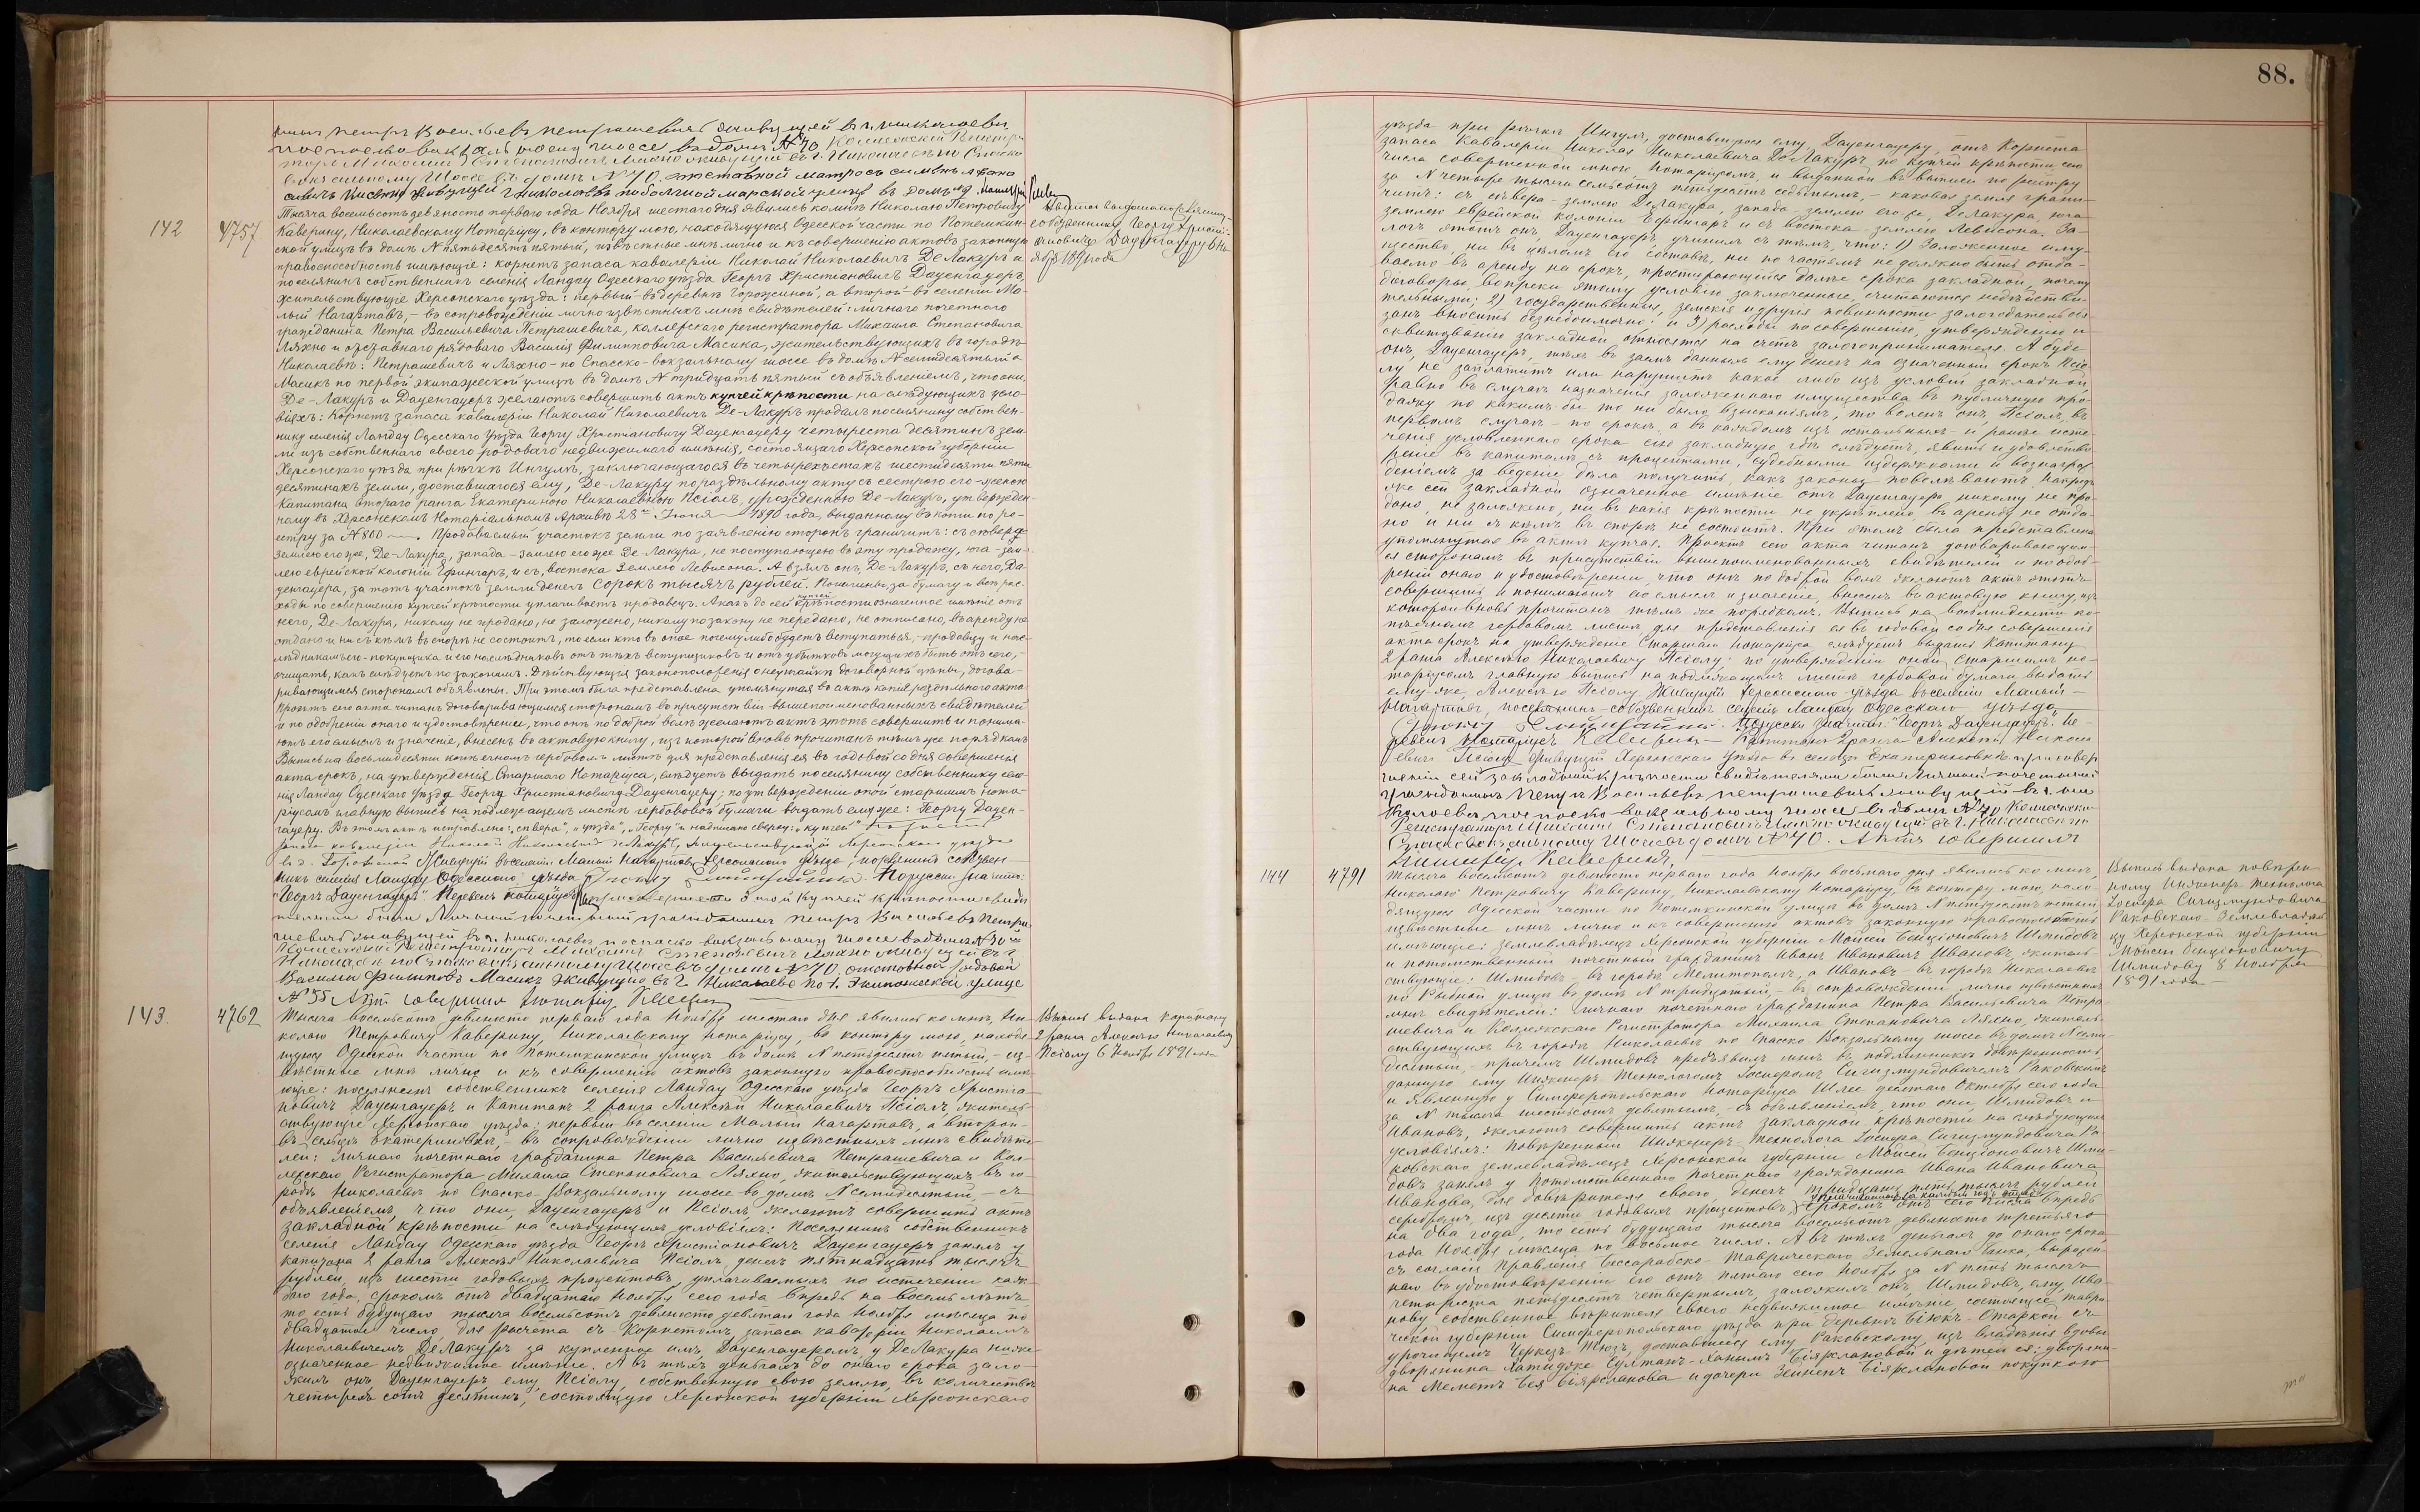 88.
Спасско
вокзальному Шоссе въ домѣ № 40. отставной матросъ
142
4757
Тысяча восемьсотъ девяносто перваго года Ноября шестаго дня явились ко мнѣ Николаю Петровичу
Каверину, Николаевскому Нотаріусу, въ контору мою, находящуюся Одесской части по Потемкин-
ской улицѣ въ домѣ № пятьдесятъ пятый, извѣстные мнѣ лично и къ совершенію актовъ законную
правоспособность имѣющіе: корнетъ запаса кавалеріи Николай Николаевичъ Де Лакуръ и
поселянинъ собственникъ селенія Ландау Одесскаго уѣзда Георгъ Христіановичъ Дауенгауеръ,
жительствующіе Херсонскаго уѣзда: первый въ деревнѣ Горожиной, а второй въ селеніи Ма-
лый Нагартавъ, – въ сопровожденіи лично извѣстныхъ мнѣ свидѣтелей: личнаго почетнаго
гражданина Петра Васильевича Петрашевича, коллежскаго регистратора Михаила Степановича
Ляхно и отставнаго рядоваго Василія Филипповича Масика, жительствующихъ въ городѣ
Николаевѣ: Петрашевичъ и Ляхно – по Спасско-вокзальному шоссе въ домѣ № семидесятый а
Масикъ по первой экипажеской улицѣ въ домѣ № тридцать пятый съ объявленіемъ, что они,
Де-Лакуръ и Дауенгауеръ желаютъ совершить актъ купчей крѣпости на слѣдующихъ усло-
віяхъ: Корнетъ запаса кавалеріи Николай Николаевичъ Де-Лакуръ продалъ поселянину собствен-
нику селенія Ландау Одесскаго уѣзда Георгу Христіановичу Дауенгауеру четыреста десятинъ зем-
ли изъ собственнаго своего родоваго недвижимаго имѣнія, состоящаго Херсонской губерніи
Херсонскаго уѣзда при рѣчкѣ Ингулѣ, заключающагося въ четырехъстахъ шестидесяти пяти
десятинахъ земли, доставшагося ему, Де-Лакуру по раздѣльному акту съ сестрою его – женою
Капитана втораго ранга Екатериною Николаевною Псіолъ, урожденною Де-Лакуръ, утвержден-
ному въ Херсонскомъ Нотаріальномъ Архивѣ 28го Іюня 1890 года, выданному въ копіи по ре-
естру за № 800 —. Продаваемый участокъ земли по заявленію сторонъ граничитъ: съ сѣвера –
землею его же, Де-Лакура, запада – землею его же Де-Лакура, не поступающею въ эту продажу, юга – зем-
лею еврейской колоніи Ефингаръ, и съ, востока землею Левшеона. А взялъ онъ, Де-Лакуръ, съ него, Да-
уенгауера, за тотъ участокъ земли денегъ сорокъ тысячъ рублей. Пошлины за бумагу и всѣ рас-
ходы по совершенію купчей крѣпости уплачиваетъ продавецъ. А какъ до сей купчей крѣпости означенное имѣніе отъ
него, Де-Лакура, никому не продано, не заложено, никому по закону не передано, не отписано, въ аренду не
отдано и ни съ кѣмъ въ спорѣ не состоитъ, то если кто въ оное почему либо будетъ вступаться, – продавцу и нас-
лѣдникамъ его – покупщика и его наслѣдниковъ отъ тѣхъ вступщиковъ и отъ убытковъ могущихъ быть отъ сего, –
очищать, какъ слѣдуетъ по законамъ. Дѣйствующія законоположенія о неутайкѣ договорной цѣны, догова-
ривающимся сторонамъ объявлены. При этомъ была представлена упомянутая въ актѣ копія раздѣльнаго акта.
Проектъ его акта читанъ договаривающимся сторонамъ въ присутствіи вышепоименованныхъ свидѣтелей
и по одобреніи онаго и удостовѣреніи, что они по доброй волѣ желаютъ актъ этотъ совершить и понима-
ютъ его смыслъ и значеніе, внесенъ въ актовую книгу, изъ которой вновь прочитанъ тѣмъ же порядкомъ
Выпись на восьмидесяти копѣечномъ гербовомъ листѣ для представленія ея въ годовой со дня совершенія
акта срокъ, на утвержденіе Старшаго Нотаріуса, слѣдуетъ выдать поселянину собственнику селе-
нія Ландау Одесскаго уѣзда Георгу Христіановичу Дауенгауеру; по утвержденіи оной старшимъ нота-
ріусомъ главную выпись на подлежащемъ листѣ гербовой бумаги выдать ему же: Георгу Дауен-
гауеру. Въ этомъ актѣ исправлено: „сѣвера", „уѣзда", „Георгу" и надписано сверху: „купчей"
Жиущій въ селеніи Малый Нагартавъ Херсонскаго уѣзда, поселянинъ собствен-
никъ селенія Ландау Одесскаго уѣзда По русски значитъ:
„Георгъ Дауенгауеръ". Перевелъ нотаріусъ При совершеніи этой купчей крѣпости свидѣ-
телями были Личный почетный гражданинъ Петръ Васильевъ Петра-
шевичъ
Василій Филиповъ Масикъ живущій въ г. Николаевѣ по 1. Экипажеской улицѣ
№ 35 Актъ совершилъ Нотаріусъ Каверинъ
Георгу Христі-
ановичу Дауенгауеру 6 Но-
ября 1891 года
143
4762
Тысяча восемьсотъ девяносто перваго года Ноября шестаго дня явились ко мнѣ, Ни-
колаю Петровичу Каверину, Николаевскому Нотаріусу, въ контору мою, находя-
щуюся Одесской части по Потемкинской улицѣ въ домѣ № пятьдесятъ пятый, – из-
вѣстные мнѣ лично и къ совершенію актовъ законную правоспособность имѣ-
ющіе: поселянинъ собственникъ селенія Ландау Одесскаго уѣзда Георгъ Христіа-
новичъ Дауенгауеръ и Капитанъ 2 ранга Алексѣй Николаевичъ Псіолъ, житель-
ствующіе Херсонскаго уѣзда: первый – въ селеніи Малый Нагартавъ, а второй –
въ сельцѣ Екатериновкѣ, – въ сопровожденіи лично извѣстныхъ мнѣ свидѣте-
лей: личнаго почетнаго гражданина Петра Васильевича Петрашевича и Кол-
лежскаго Регистратора Михаила Степановича Ляхно, жительствующихъ въ го-
родѣ Николаевѣ по Спасско-Вокзальному шоссе въ домѣ № семидесятый, – съ
объявленіемъ, что они, Дауенгауеръ и Псіолъ, желаютъ совершить актъ
закладной крѣпости на слѣдующихъ условіяхъ: Поселянинъ собственникъ
селенія Ландау Одесскаго уѣзда Георгъ Христіановичъ Дауенгауеръ занялъ у
капитана 2 ранга Алексѣя Николаевича Псіолъ, денегъ пятнадцать тысячъ
рублей, изъ шести годовыхъ процентовъ, уплачиваемыхъ по истеченіи каж-
даго года, срокомъ отъ двадцатаго Ноября сего года впредь на восемь лѣтъ
то есть будущаго тысяча восемьсотъ девяносто девятаго года Ноября мѣсяца по
двадцатое число, для расчета съ Корнетомъ запаса кавалеріи Николаемъ
Николаевичемъ Де Лакуръ за купленное имъ, Дауенгауеромъ, у Де Лакура ниже-
означенное недвижимое имѣніе. А въ тѣхъ деньгахъ до онаго срока зало-
жилъ онъ Дауенгауеръ ему Псіолу собственную свою землю, въ количествѣ
четырехъ сотъ десятинъ, состоящую Херсонской губерніи Херсонскаго
Выпись выдана капитану
2 ранга Алексѣю Николаевичу
Псіолу 6 Ноября 1891 года
уѣзда при рѣчкѣ Ингулѣ, доставшуюся ему, Дауенгауеру, отъ Корнета
запаса Кавалеріи Николая Николаевича Де Лакуръ по купчей крѣпости, сего
числа совершенной мною, Нотаріусомъ, и выданной въ выписи по реестру
за № четыре тысячи семьсотъ пятьдесятъ седьмымъ, – каковая земля грани-
читъ: съ сѣвера – землею Де Лакура, запада – землею его же, Де Лакура, юга
землею еврейской колоніи Ефингаръ и съ востока – землею Левшеона. За-
логъ этотъ онъ, Дауенгауеръ, учинилъ съ тѣмъ, что: 1) Заложенное иму-
щество, ни въ цѣломъ его составѣ, ни по частямъ не должно быть отда-
ваемо въ аренду на срокъ, простирающійся далѣе срока закладной, почему
договоры, вопреки этому условію заключенные, считаются недѣйстви-
тельными; 2) государственныя, земскія и другія повинности залогодатель обя-
занъ вносить бездоимочно: и 3) расходы по совершенію, утвержденію и
сквитованію закладной относятся на счетъ залогопринимателя. А буде
онъ, Дауенгауеръ, тѣхъ въ заемъ данныхъ ему денегъ на означенный срокъ Псіо-
лу не заплатитъ или нарушитъ какое либо изъ условій закладной,
равно въ случаѣ назначенія заложеннаго имущества въ публичную про-
дажу по какимъ бы то ни было взысканіямъ, то воленъ онъ, Псіолъ, въ
первомъ случаѣ – по срокѣ, а въ каждомъ изъ остальныхъ – и ранѣе исте-
ченія условленнаго срока сію закладную гдѣ слѣдуетъ, явить и удовлетво-
реніе въ капиталѣ съ процентами, судебными издержками и вознаграж-
деніемъ за веденіе дѣла получить, какъ законы повелѣваютъ. Напредь
же сей закладной означенное имѣніе отъ Дауенгауера, никому не про-
дано, не заложено, ни въ какія крѣпости не укрѣплено, въ аренду не отда-
но и ни съ кѣмъ въ спорѣ не состоитъ. При этомъ была представлена
упомянутая въ актѣ купчая. Проектъ сего акта читанъ договаривающим-
ся сторонамъ въ присутствіи вышепоименованныхъ свидѣтелей и по одоб-
реніи онаго и удостовѣреніи, что они по доброй волѣ желаютъ актъ этотъ
совершить и понимаютъ его смыслъ и значеніе, внесенъ въ актовую книгу, изъ
которой вновь прочитанъ тѣмъ же порядкомъ. Выпись на восьмидесяти ко-
пѣечномъ гербовомъ листѣ для представленія ея въ годовой со дня совершенія
акта срокъ на утвержденіе Старшаго Нотаріуса слѣдуетъ выдать Капитану
2 ранга Алексѣю Николаевичу Псіолу; по утвержденіи оной старшимъ но-
таріусомъ главную выпись на подлежащемъ листѣ гербовой бумаги выдать
ему же, Алексѣю Псіолу. Живущій Херсонскаго уѣзда въ селеніи Малый –
Нагартавъ, поселянинъ – собственникъ селенія Ландау Одесскаго уѣзда
По русски значитъ: „Георгъ Дауенгауеръ". Пе-
ревелъ Нотаріусъ Каверинъ – Капитанъ 2 ранга Алексѣй Никола-
евичъ Псіолъ живущій Херсонскаго уѣзда въ сельцѣ Екатериновкѣ при совер-
шеніи сей закладной крѣпости свидѣтелями были Личный почетный
гражданинъ Петръ Васильевъ Петрашевичъ живущій въ г. Ни-
колаевѣ по спаско вокзальному шоссе въ домѣ № 40 Коллежскій
Регистраторъ Михаилъ Степановичъ Ляхно живущій въ г. Николаевѣ по
Спасовокзальному Шоссе въ домѣ № 40. Актъ совершилъ
Нотаріусъ Каверинъ.
144
4791
Тысяча восемьсотъ девяносто перваго года Ноября восьмаго дня явились ко мнѣ,
Николаю Петровичу Каверину, Николаевскому Нотаріусу, въ контору мою, нахо-
дящуюся Одесской части по Потемкинской улицѣ въ домѣ № пятьдесятъ пятый
извѣстные мнѣ лично и къ совершенію актовъ законную правоспособность
имѣющіе: землевладѣлецъ Херсонской губерніи Мойсей Бенціоновичъ Шмидовъ
и потомственный почетный гражданинъ Иванъ Ивановичъ Ивановъ, житель-
ствующіе: Шмидовъ – въ городѣ Мелитополѣ, а Ивановъ – въ городѣ Николаевѣ
по Рыбной улицѣ въ домѣ № тридцатый, – въ сопровожденіи лично извѣстныхъ
мнѣ свидѣтелей: личнаго почетнаго гражданина Петра Васильевича Петра-
шевича и Коллежскаго Регистратора Михаила Степановича Ляхно, житель-
ствующихъ въ городѣ Николаевѣ по Спасско Вокзальному шоссе въ домѣ № семи-
десятый, – причемъ Шмидовъ предъявилъ мнѣ въ подлинникѣ довѣренность,
данную ему Инженеръ Технологомъ Іосифомъ Сигизмундовичемъ Раковскимъ
и явленную у Симферопольскаго Нотаріуса Шлее десятаго Октября сего года
за № тысяча шестьсотъ девятымъ, – съ объявленіемъ, что они, Шмидовъ и
Ивановъ, желаютъ совершить актъ закладной крѣпости на слѣдующихъ
условіяхъ: Повѣренный Инженеръ-Технолога Іосифа Сигизмундовича Ра-
ковскаго землевладѣлецъ Херсонской губерніи Мойсей Бенціоновичъ Шми-
довъ занялъ у Потомственнаго Почетнаго гражданина Ивана Ивановича
Иванова, для довѣрителя своего, денегъ тридцать пять тысячъ рублей
серебромъ, изъ десяти годовыхъ процентовъ, срокомъ отъ сего числа впредь
на два года, то есть будущаго тысяча восемьсотъ девяносто третьяго
года Ноября мѣсяца по восьмое число. А въ тѣхъ деньгахъ до онаго срока
съ согласія Правленія Бессарабско-Таврическаго Земельнаго банка, выражен-
наго въ удостовѣреніи его отъ пятаго сего Ноября за № пять тысячъ
четыреста пятьдесятъ четвертымъ, заложилъ онъ, Шмидовъ, ему, Ива-
нову, собственное вѣрителя своего недвижимое имѣніе, состоящее Таври-
ческой губерніи Симферопольскаго уѣзда при деревнѣ Біюкъ-Отаркой съ
урочищемъ Черкезъ-Тюзъ, доставшееся ему Раковскому, изъ владѣнія вдовы
дворянина Хатидже Султанъ-Ханымъ Біярслановой и дѣтей ея: дворяни-
на Меметъ Бея Біярсланова и дочери Зейнепъ Біярслановой покупкою
Выпись выдана повѣрен-
ному Инженеръ Технолога
Іосифа Сигизмундовича
Раковскаго Землевладѣль-
цу Херсонской губерніи
Мойсею Бенціоновичу
Шмидову 8 Ноября
1891 года